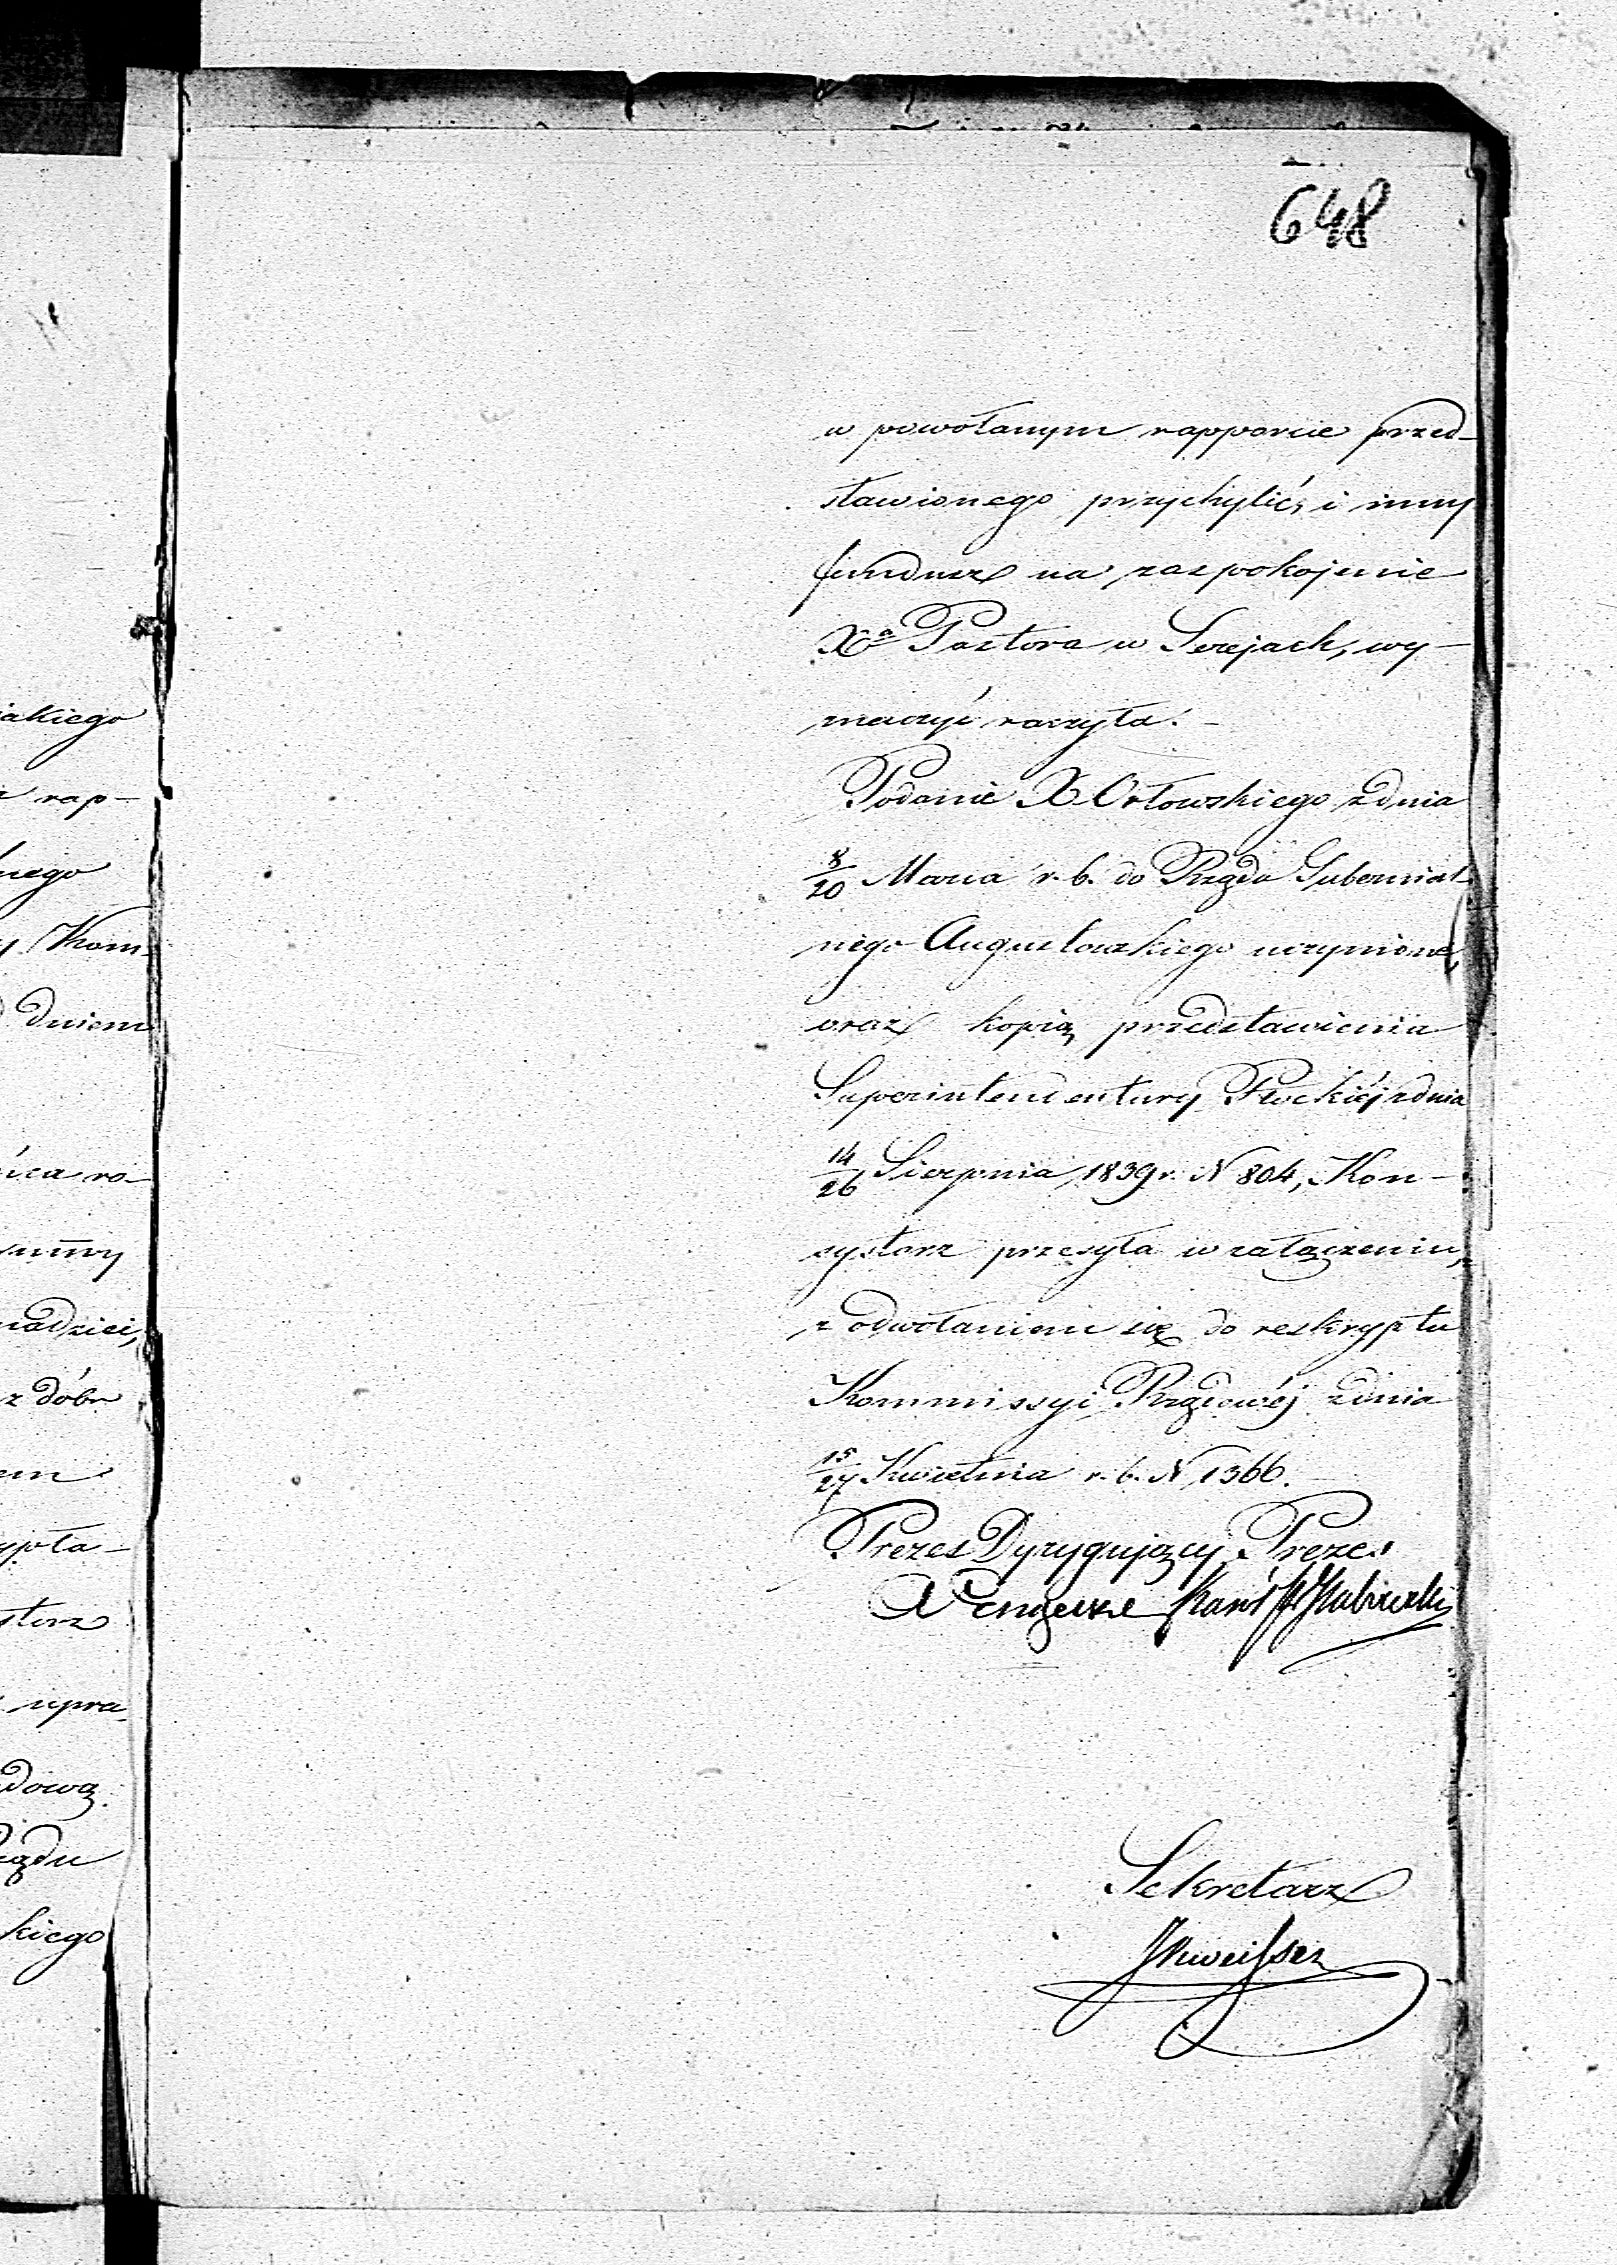 648
w powołanym rapporcie przed-
stawionego przychylić, i inny
fundusz na zaspokojenie
Xa Pastora w Serejach, wy-
znaczyć raczyła.-
Podanie X Orłowskiego z dnia
8/20 Marca r. b. do Rządu Gubernial-
nego Augustowskiego uczynione,
oraz kopią przedstawienia
Superintendentury Płockiéj z dnia
14/26 Sierpnia 1839 r. N 804, Kon-
systorz przesyła w załączeniu,
z odwołaniem się do reskryptu
Kommissyi Rządowéj z dnia
15/27 Kwietnia r. b. N 1366.
Prezes Dyrygujący Prezes
Karol
Sekretarz
iakiego
rap-
nego
Kom-
dniem
ro-
summy
z dóbr
ypta-
storz
upra-
dową
ządu
kiego